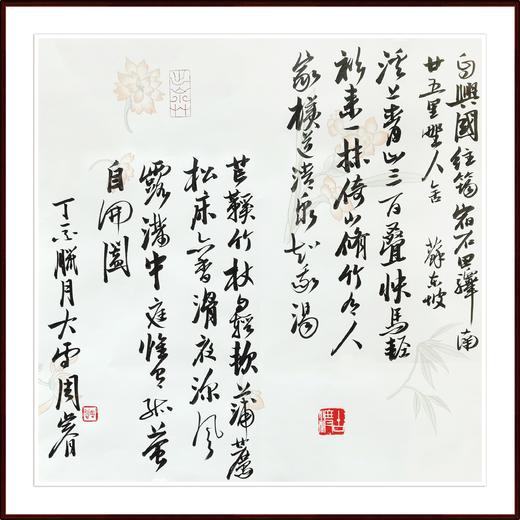 自興國往筠宿石田驛南
廿五里野人舍 蘇东坡
溪上青山三百叠快馬輕
衫来一抹倚山脩竹有人
家横道清泉知我渴
芒鞵竹杖自輕軟蒲薦
松床亦香滑夜深风
露满中庭惟見孤萤
自開阖
丁酉臘月大雪周